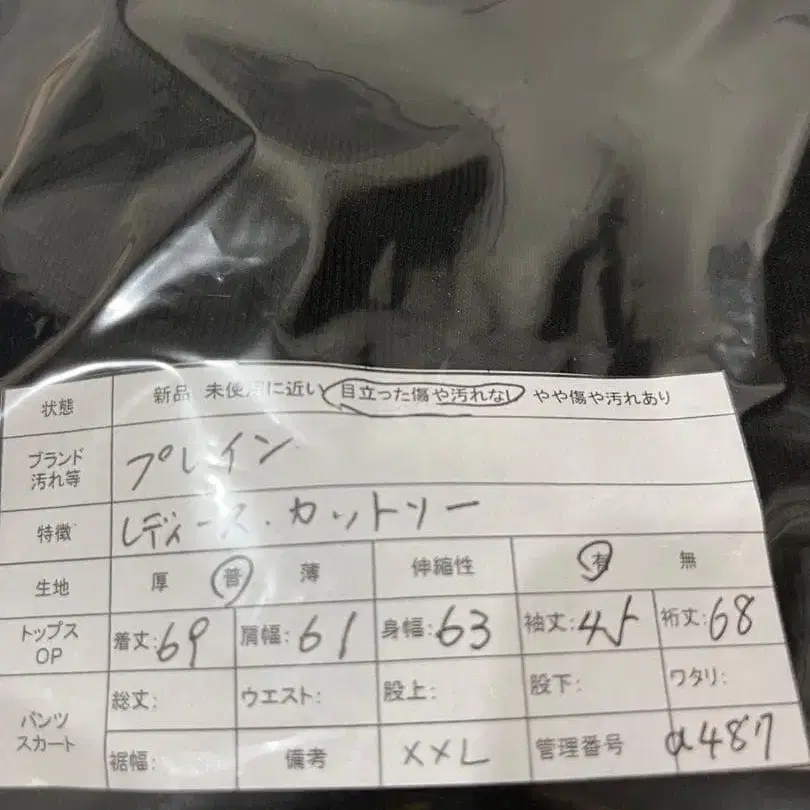 状態 新品 未使用に近い 目立った傷や汚れなし やや傷や汚れあり
ブランド 汚れ等 プレイン
特徴 レディース.カットソー
生地 厚 普 薄 伸縮性 有 無
トップス OP 着丈:69 肩幅:61 身幅:63 袖丈:45 裄丈:68
パンツ スカート 総丈: ウエスト: 股上: 股下: ワタリ:
裾幅: 備考 XXL 管理番号 a487